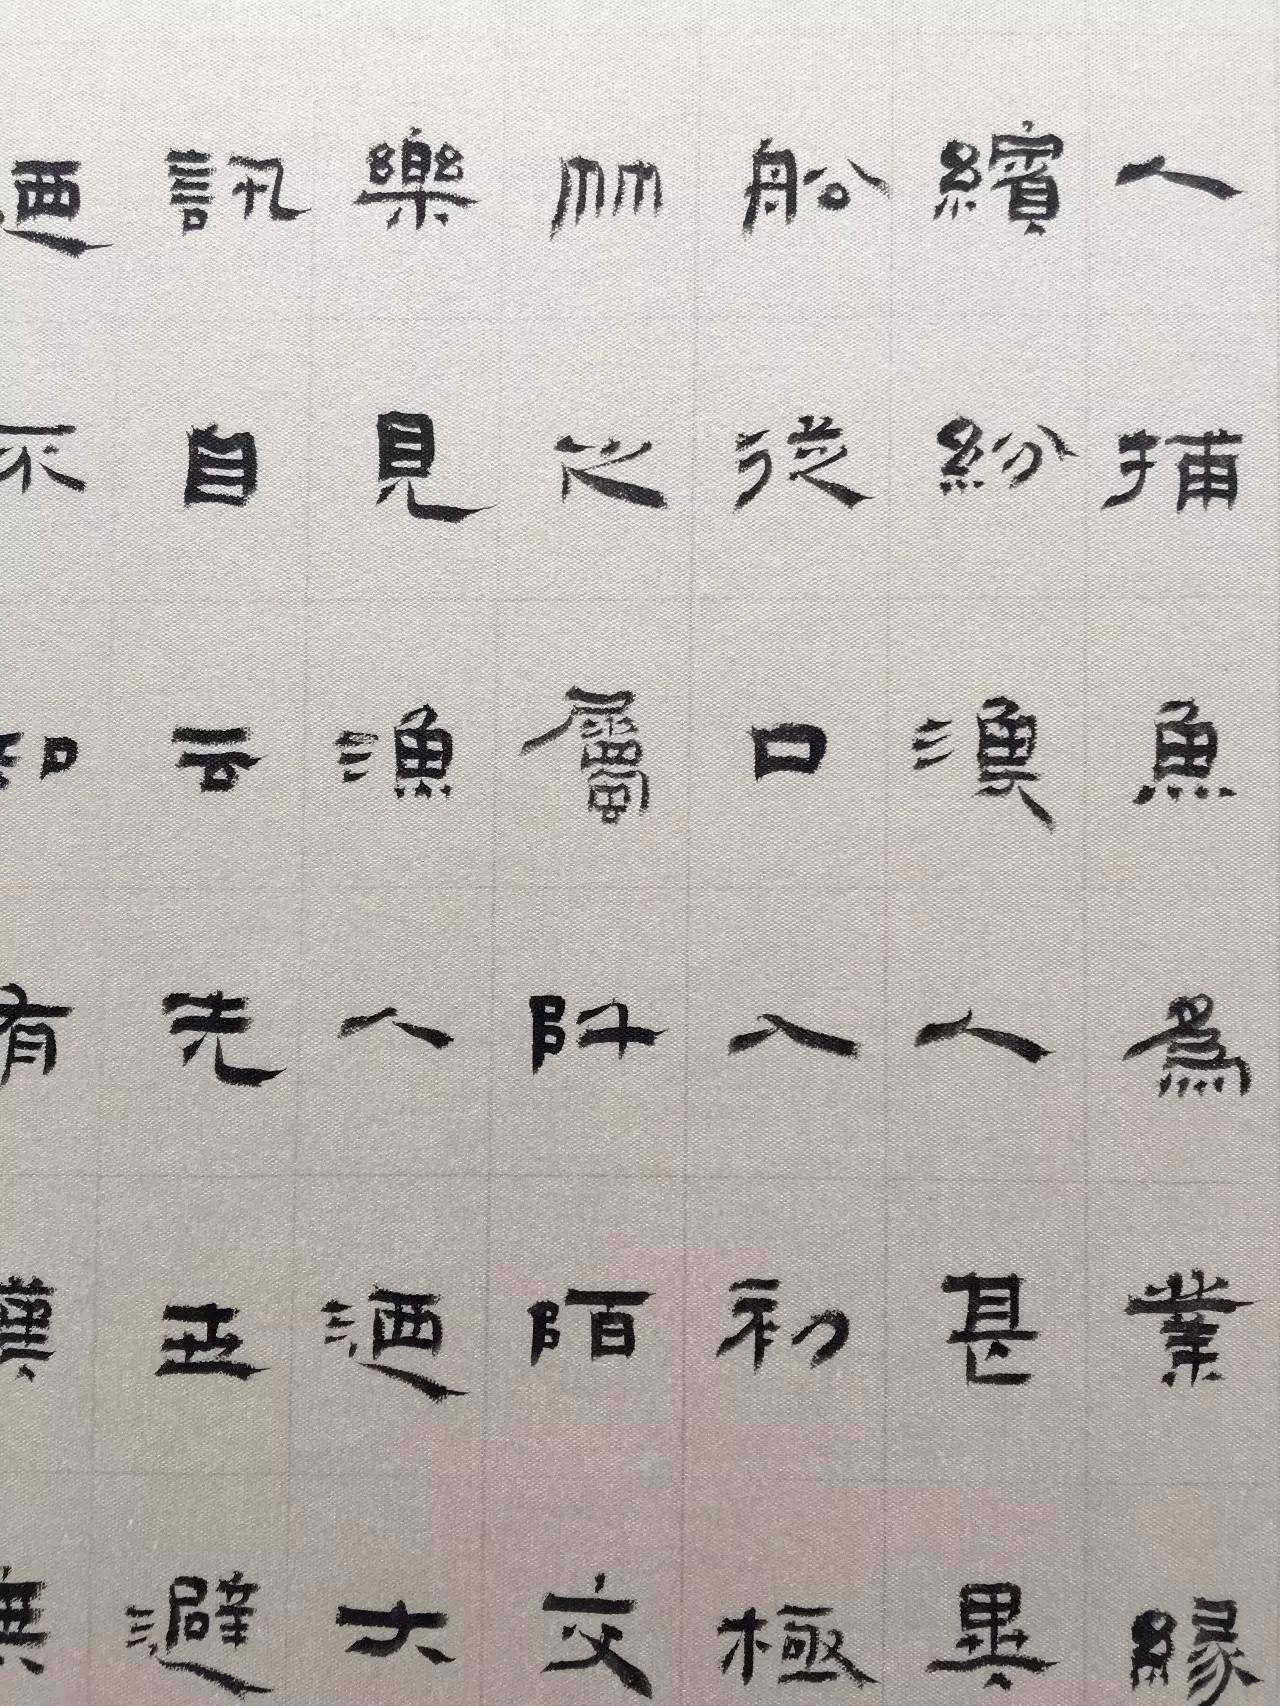 人捕魚爲業緣
繽紛漁人甚異
船從口入初極
竹之屬阡陌交
樂見漁人迺大
訊自云先世避
迺不知有漢無